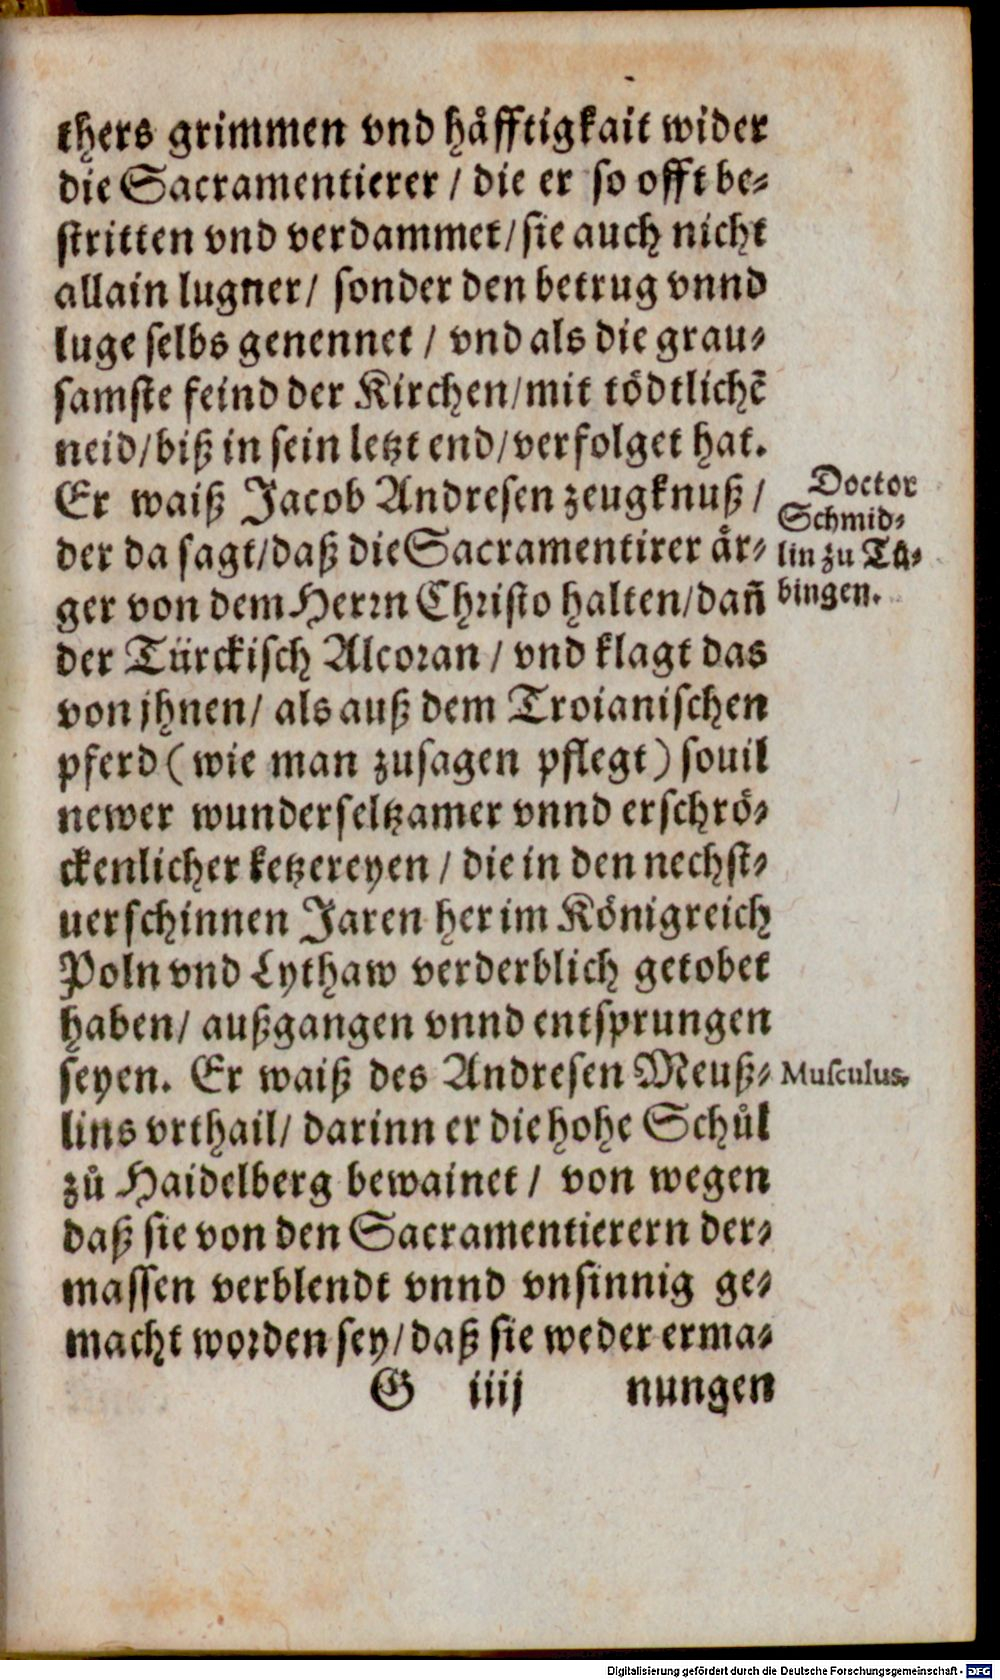 thers grimmen vnd håfftigkait wider
die Sacramentierer / die er so offt be⸗
stritten vnd verdammet/ sie auch nicht
allain lugner/ sonder den betrug vnnd
luge selbs genennet / vnd als die grau⸗
samste feind der Kirchen/mit tödtlichē
neid/biß in sein letzt end/verfolget hat.
Er waiß Jacob Andresen zeugknuß /
der da sagt/daß die Sacramentirer år⸗
ger von dem Herrn Christo halten/dañ
der Türckisch Alcoran / vnd klagt das
von jhnen/ als auß dem Troianischen
pferd (wie man zusagen pflegt) souil
newer wunderseltzamer vnnd erschrö⸗
ckenlicher ketzereyen / die in den nechst⸗
uerschinnen Jaren her im Königreich
Poln vnd Lythaw verderblich getobet
haben/ außgangen vnnd entsprungen
seyen. Er waiß des Andresen Meuß⸗
lins vrthail/ darinn er die hohe Schůl
zů Haidelberg bewainet / von wegen
daß sie von den Sacramentierern der⸗
massen verblendt vnnd vnsinnig ge⸗
macht worden sey/daß sie weder erma⸗
G iiij nungen
Doctor
Schmid⸗
lin zu Tů⸗
bingen.
Musculus.
Digitalisierung gefördert durch die Deutsche Forschungsgemeinschaft - DFG